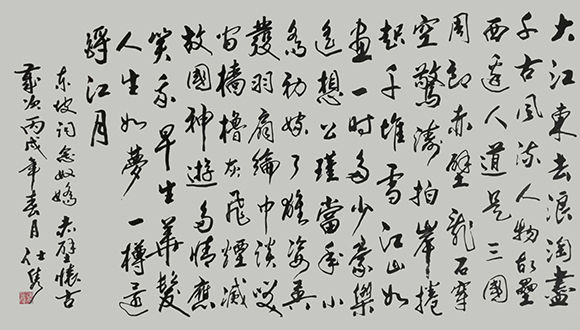 大江東去浪淘盡
千古風流人物故壘
西邊人道是三國
周郎赤壁亂石穿
空驚濤拍岸捲
起千堆雪江山如
畫一時多少豪傑
遙想公瑾當年小
喬初嫁了雄姿英
發羽扇綸巾談咲
間檣櫓灰飛煙滅
故國神遊多情應
笑我早生華髮
人生如夢一樽還
酹江月
東坡詞念奴嬌赤壁懷古
歲次丙戌年春月仕